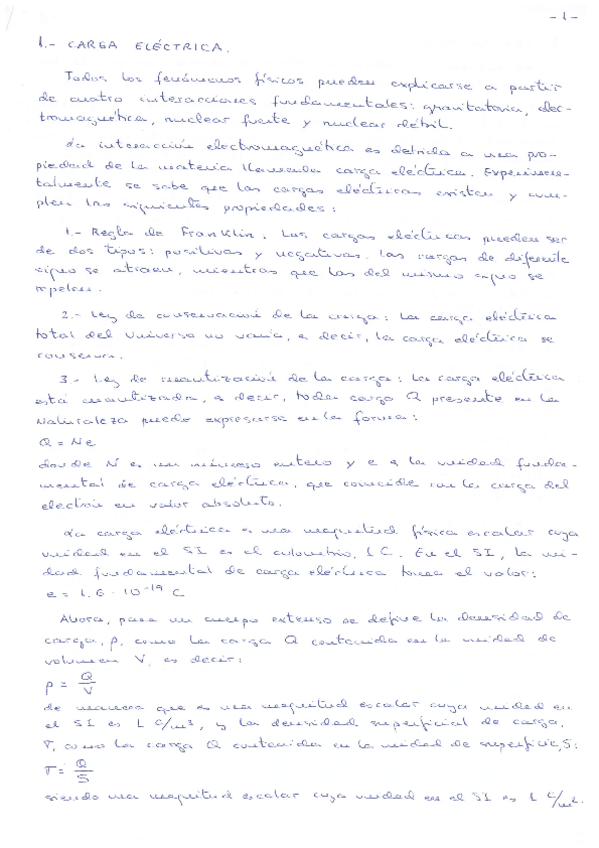 -1-
1.- CARGA ELÉCTRICA.
Todos los fenómenos físicos pueden explicarse a partir
de cuatro interacciones fundamentales: gravitatoria, elec-
tromagnética, nuclear fuerte y nuclear débil.
La interacción electromagnética es debida a una pro-
piedad de la materia llamada carga eléctrica. Experimen-
talmente se sabe que las cargas eléctricas existen y cum-
plen las siguientes propiedades:
1.- Regla de Franklin. Las cargas eléctricas pueden ser
de dos tipos: positivas y negativas. Las cargas de diferente
signo se atraen, mientras que las del mismo signo se
repelen.
2.- Ley de conservación de la carga: La carga eléctrica
total del Universo no varía, es decir, la carga eléctrica se
conserva.
3.- Ley de cuantización de la carga: La carga eléctrica
está cuantizada, es decir, toda carga Q presente en la
Naturaleza puede expresarse en la forma:
Q = Ne
donde N es un número entero y e es la unidad funda-
mental de carga eléctrica, que coincide con la carga del
electrón en valor absoluto.
La carga eléctrica es una magnitud física escalar cuya
unidad en el SI es el culombio, 1 C. En el SI, la uni-
dad fundamental de carga eléctrica toma el valor:
e = 1,6 · 10⁻¹⁹ C
Ahora, para un cuerpo extenso se define la densidad de
carga, ρ, como la carga Q contenida en la unidad de
volumen V, es decir:
ρ = Q/V
de manera que es una magnitud escalar cuya unidad en
el SI es 1 C/m³, y la densidad superficial de carga,
σ, como la carga Q contenida en la unidad de superficie, S:
σ = Q/S
siendo una magnitud escalar cuya unidad en el SI es 1 C/m².